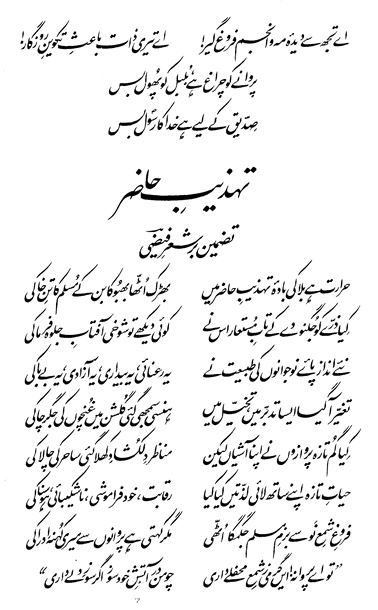 اے تجھ سے دیدۂ مہ و انجم فروغ گیر! اے تیری ذات باعثِ تکوینِ روزگار!
پروانے کو چراغ ہے، بُلبل کو پھُول بس
صِدّیقؓ کے لیے ہے خدا کا رسُولؐ بس
تہذیبِ حاضر
تضمین بر شعرِ فیضیؔ
حرارت ہے بلا کی بادۂ تہذیبِ حاضر میں بھڑک اُٹھّا بھبُوکا بن کے مُسلم کا تنِ خاکی
کِیا ذرّے کو جُگنو دے کے تابِ مُستعار اس نے کوئی دیکھے تو شوخی آفتابِ جلوہ فرما کی
نئے انداز پائے نوجوانوں کی طبیعت نے یہ رعنائی، یہ بیداری، یہ آزادی، یہ بے باکی
تغیّر آگیا ایسا تدبّر میں، تخیّل میں ہنسی سمجھی گئی گلشن میں غُنچوں کی جگر چاکی
کِیا گُم تازہ پروازوں نے اپنا آشیاں لیکن مناظر دِلکُشا دِکھلا گئی ساحر کی چالاکی
حیاتِ تازہ اپنے ساتھ لائی لذّتیں کیا کیا رقابت، خودفروشی، ناشکیبائی، ہوَسناکی
فروغِ شمعِ نَو سے بزمِ مسلم جگمگا اُٹھّی مگر کہتی ہے پروانوں سے میری کُہنہ اِدراکی
”تو اے پروانہ! ایں گرمی ز شمعِ محفلے داری چو من در آتشِ خود سوز اگر سوزِ دلے داری“